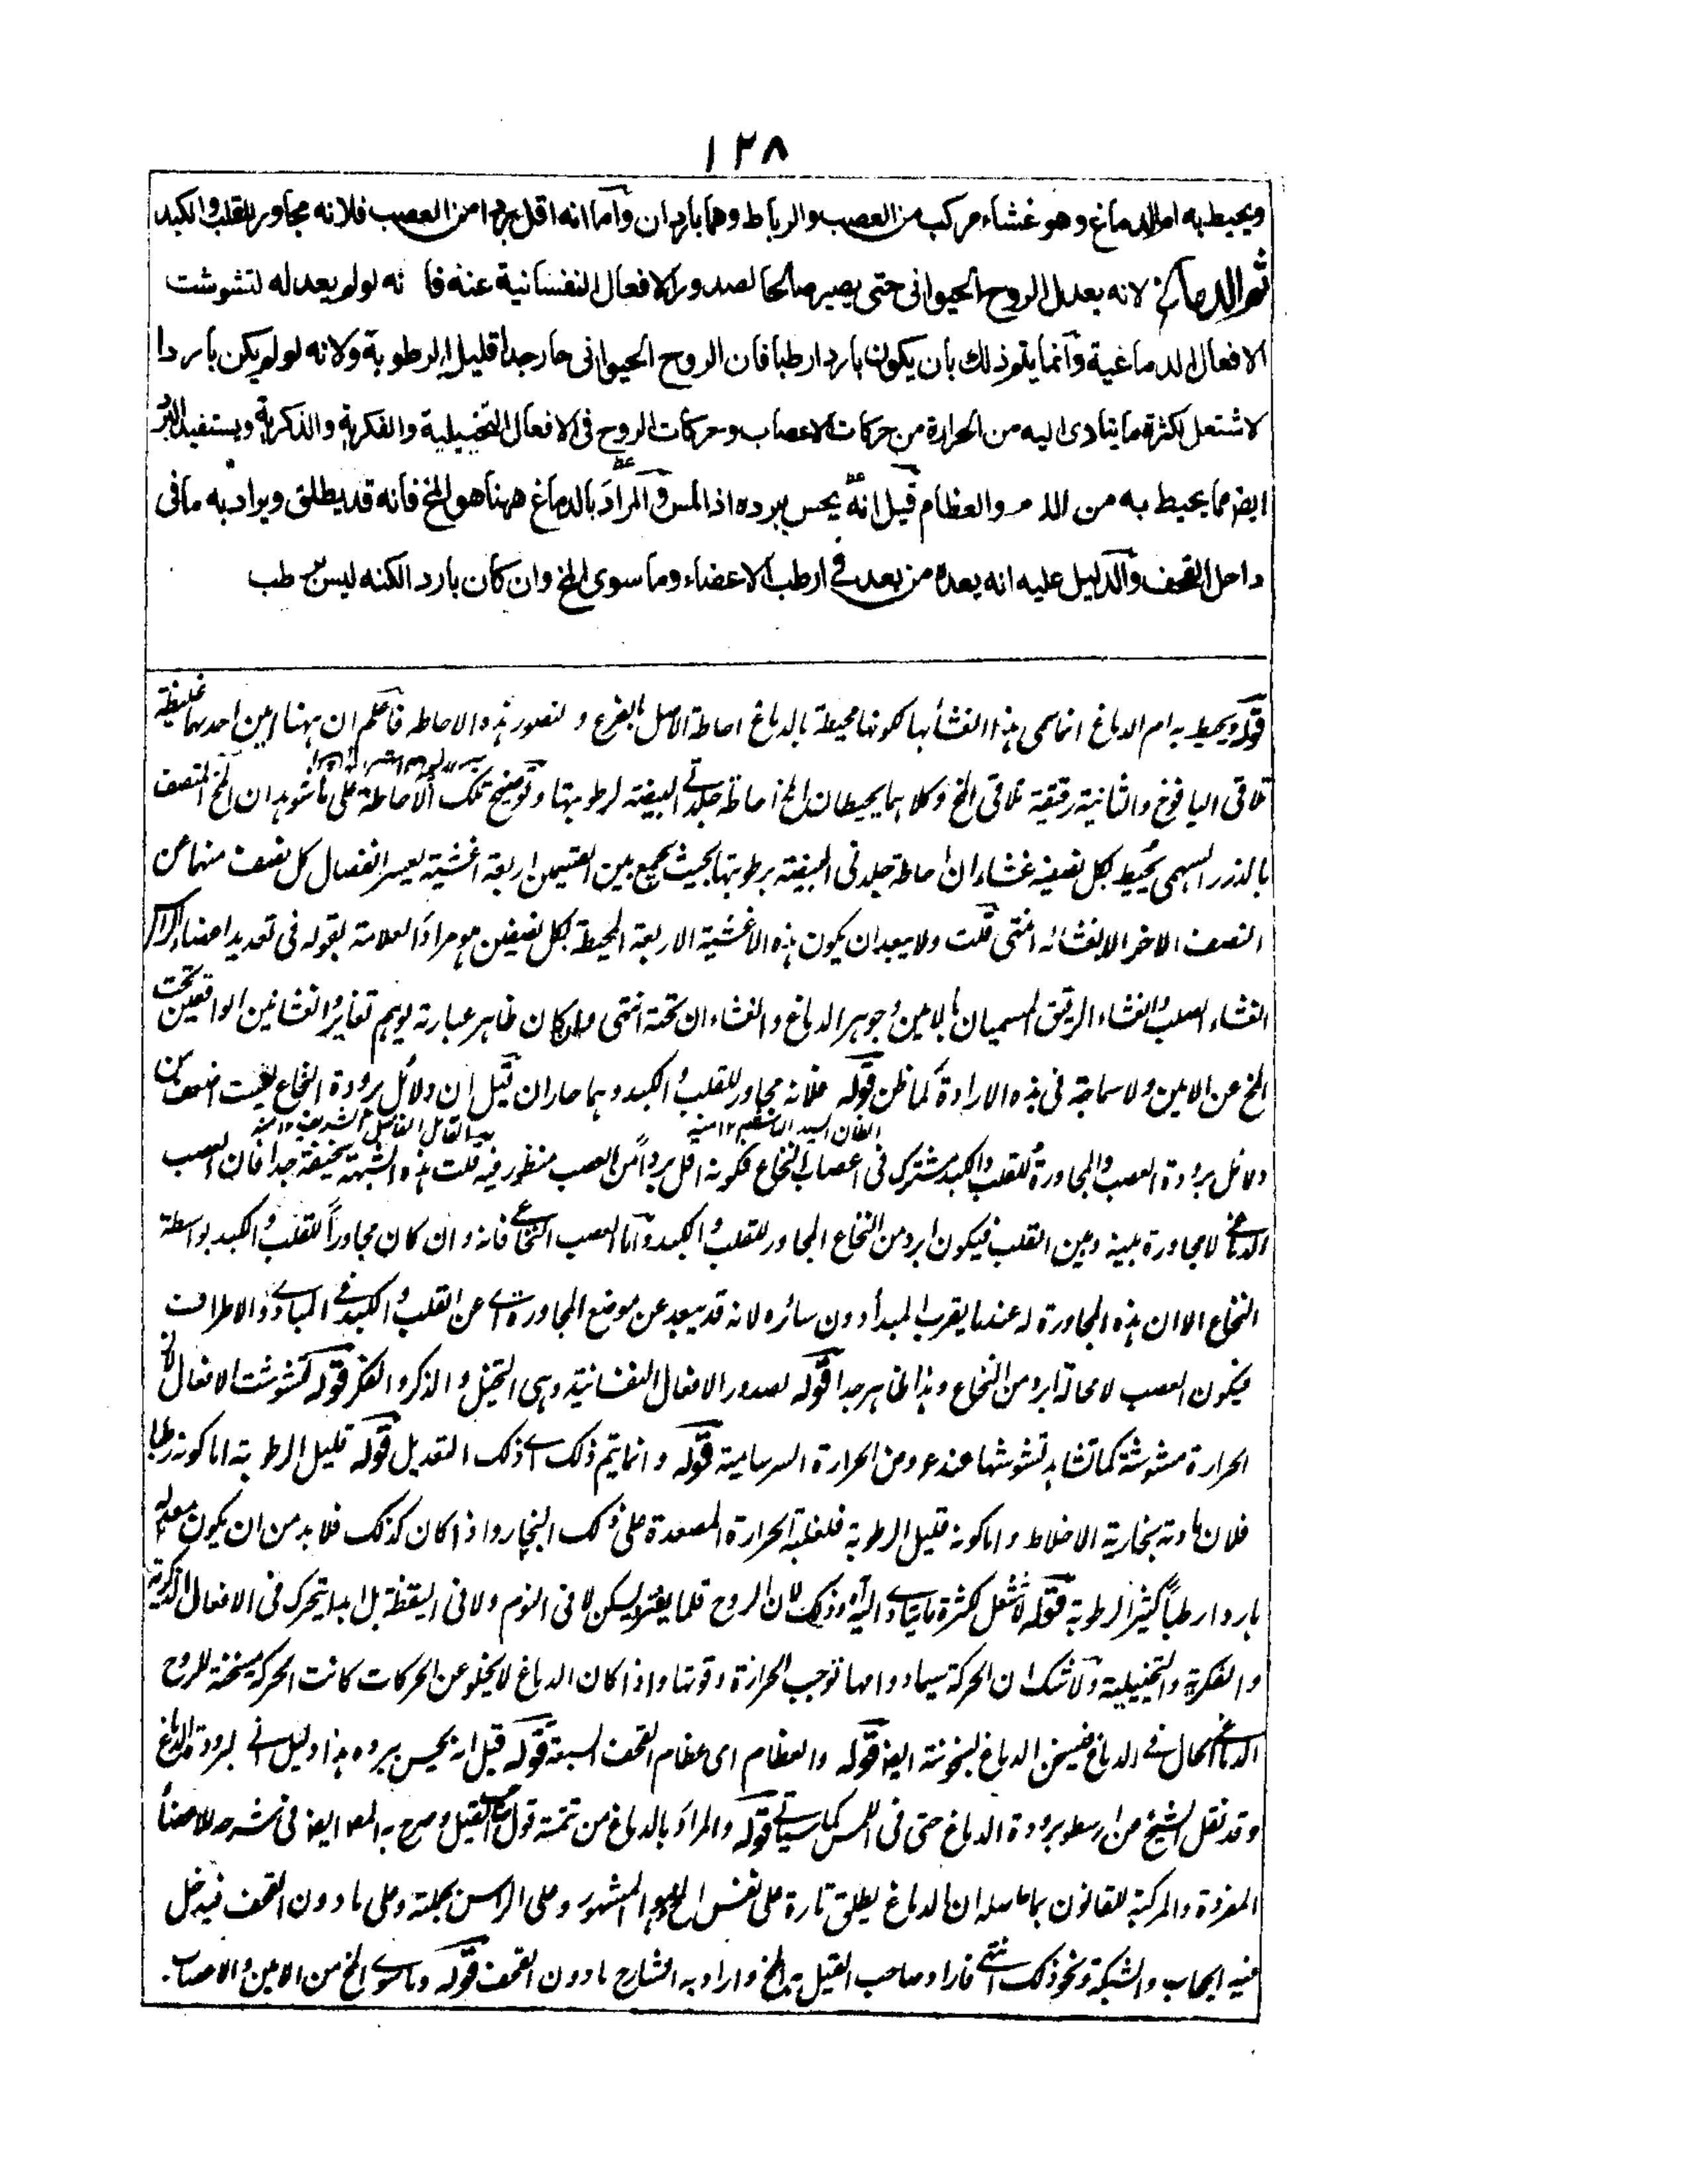 ١٢٨
ويحيط به ام الدماغ وهو غشاء مركب من العصب والرباط وهما باردان واما انه اقل بردا من العصب فلانه مجاور للقلب والكبد
ثم الدماغ لانه يعدل الروح الحيوانى حتى يصير صالحا لصدور الافعال النفسانية عنه فا نه لولم يعدله لتشوشت
الافعال الدماغية وانما يتم ذلك بأن يكون باردا رطبا فان الروح الحيوانى حار جدا قليل الرطوبة ولانه لولم يكن باردا
لاشتعل لكثرة ما يتادى اليه من الحرارة من حركات الاعصاب وحركات الروح فى الافعال التخييلية والفكرية والذكرية ويستفيد البرد
ايضا مما يحيط به من الدم والعظام قيل انه يحس ببرده اذا لمس والمراد بالدماغ ههنا هو المخ فانه قد يطلق ويراد به ما فى
داخل القحف والدليل عليه انه يعده من بعد فى ارطب الاعضاء وما سوى المخ وان كان باردا لكنه ليس برطب
قوله ويحيط به ام الدماغ انما سمى هذا الغشاء بها لكونها محيطة بالدماغ احاطة الاصل بالفرع و لتصور هذه الاحاطه فاعلم ان ههنا امين احدهما غليظة
تلاقى اليافوخ والثانية رقيقة تلاقى المخ وكلاهما يحيطان المخ احاطة جلدتى البيضة لرطوبتها وتوضيح تلك الاحاطة على ما شوهد ان المخ المنصف
بالدرز السهمى يحيط بكل نصفيه غشاءان احاطة جلدتى البيضة برطوبتها بحيث يجمع بين القسمين اربعة اغشية يعسر انفصال كل نصف منهما عن
النصف الاخر الا بغشائه انتهى قلت ولا يبعد ان يكون هذه الاغشية الاربعة المحيطة بكل نصفين هو مراد العلامة بقوله فى تعديد اعضاء الراس
الغشاء الصلب والغشاء الرقيق المسميان بالامين وجوهر الدماغ والغشاءان تحته انتهى وان كان ظاهر عبارته يوهم تغاير الغشائين الواقعين تحت
المخ عن الامين ولا سماجة فى هذه الارادة كما ظن قوله فلانه مجاور للقلب والكبد وهما حاران قيل ان دلائل برودة النخاع ليست اضعف من
دلائل برودة العصب والمجاورة للقلب والكبد مشترك فى اعصاب النخاع فكونه اقل بردا من العصب منظور فيه قلت هذه الشبهة سخيفة جدا فان العصب
الدماغى لا مجاورة بينه وبين القلب فيكون ابرد من النخاع المجاور للقلب والكبد واما العصب النخاعى فانه وان كان مجاوراً للقلب والكبد بواسطة
النخاع الا ان هذه المجاورة له عندما يقرب المبدأ دون سائره لانه قد يبعد عن موضع المجاورة اى عن القلب والكبد فى المبادى والاطراف
فيكون العصب لا محالة ابرد من النخاع وهذا ظاهر جدا قوله لصدور الافعال النفسانية وهى التخيل والذكر والفكر قوله لتشوشت الافعال لان
الحرارة مشوشة كما تشاهد تشوشها عند عروض الحرارة السرسامية قوله وانما يتم ذلك اى ذلك التعديل قوله قليل الرطوبة اما كونه رطبا
فلان مادته بخارية الاخلاط واما كونه قليل الرطوبة فلغلبة الحرارة المصعدة على ذلك البخار واذا كان كذلك فلا بد من ان يكون معدله
باردا رطباً كثير الرطوبة قوله لاشتعل لكثرة ما يتادى اليه وذلك لان الروح قلما يفتر ويسكن لا فى النوم ولا فى اليقظة بل ابدا يتحرك فى الافعال الذكرية
والفكرية والتخييلية ولا شك ان الحركة سيما دوامها توجب الحرارة وقوتها واذا كان الدماغ لا يخلو عن الحركات كانت الحركة مسخنة للروح
الدماغى الحال فى الدماغ فيسخن الدماغ بسخونته ايضا قوله والعظام اى عظام القحف السبعة قوله قيل انه يحس ببرده هذا دليل انى لبرودة الدماغ
وقد نقل الشيخ من ارسطو برودة الدماغ حتى فى اللمس كما سياتى قوله والمراد بالدماغ من تتمة قول القيل وصرح به ايضا فى شرحه للاعضاء
المفردة والمركبة للقانون بما حاصله ان الدماغ يطلق تارة على نفس المخ وهو المشهور وعلى الراس بجملته وعلى ما دون القحف فيدخل
فيه الحجاب والشبكة ونحو ذلك انتهى فاراد صاحب القيل به المخ واراد به الشارح ما دون القحف قوله وما سوى المخ من الامين والاعصاب.